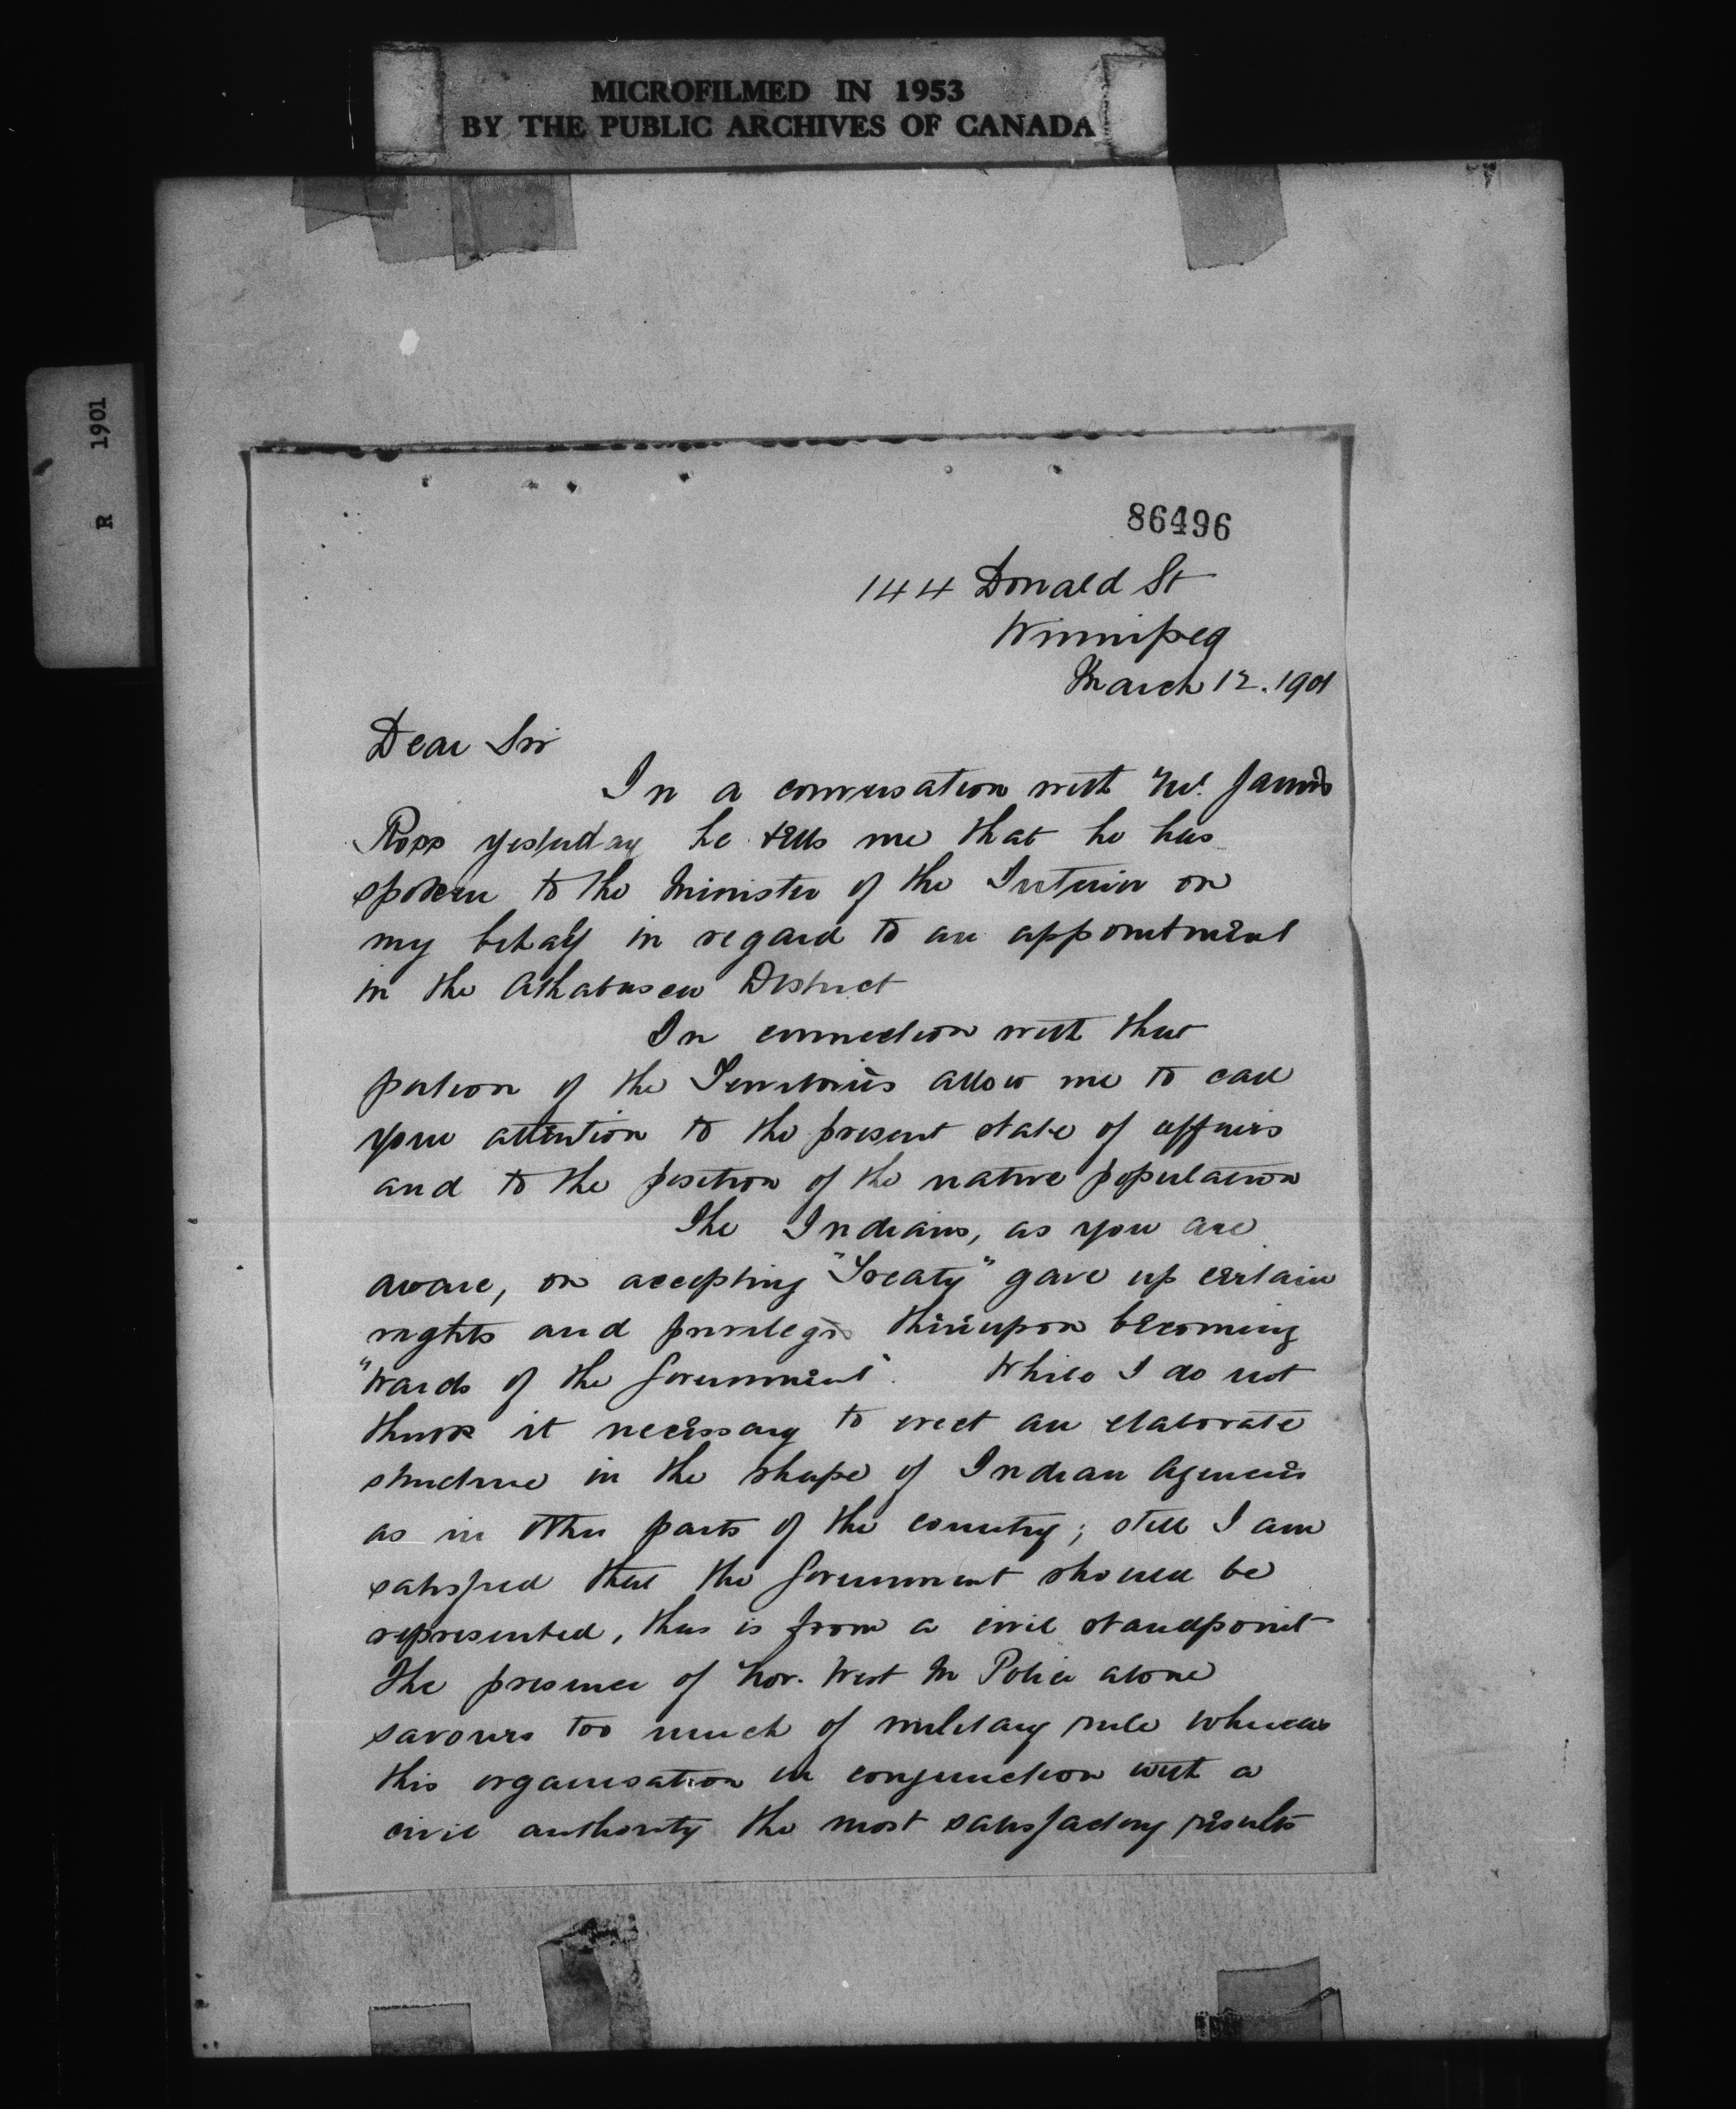 MICROFILMED IN 1953
BY THE PUBLIC ARCHIVES OF CANADA
R 1901
86496
144 Donald St
Winnipeg
March 12. 1901
Dear Sir
In a conversation with Mr. James
Ross yesterday he tells me that he has
spoken to the Minister of the Interior on
my behalf in regard to an appointment
in the Athabasca District
In connection with that
portion of the Territories allow me to call
your attention to the present state of affairs
and to the position of the native population
The Indians, as you are
aware, on accepting "Treaty" gave up certain
rights and privileges thereupon becoming
"Wards of the Government". While I do not
think it necessary to erect an elaborate
structure in the shape of Indian Agencies
as in other parts of the country; still I am
satisfied that the Government should be
represented, that is from a civil standpoint
The presence of Nor. West M Police alone
savours too much of military rule whereas
this organisation in conjunction with a
civil authority the most satisfactory results